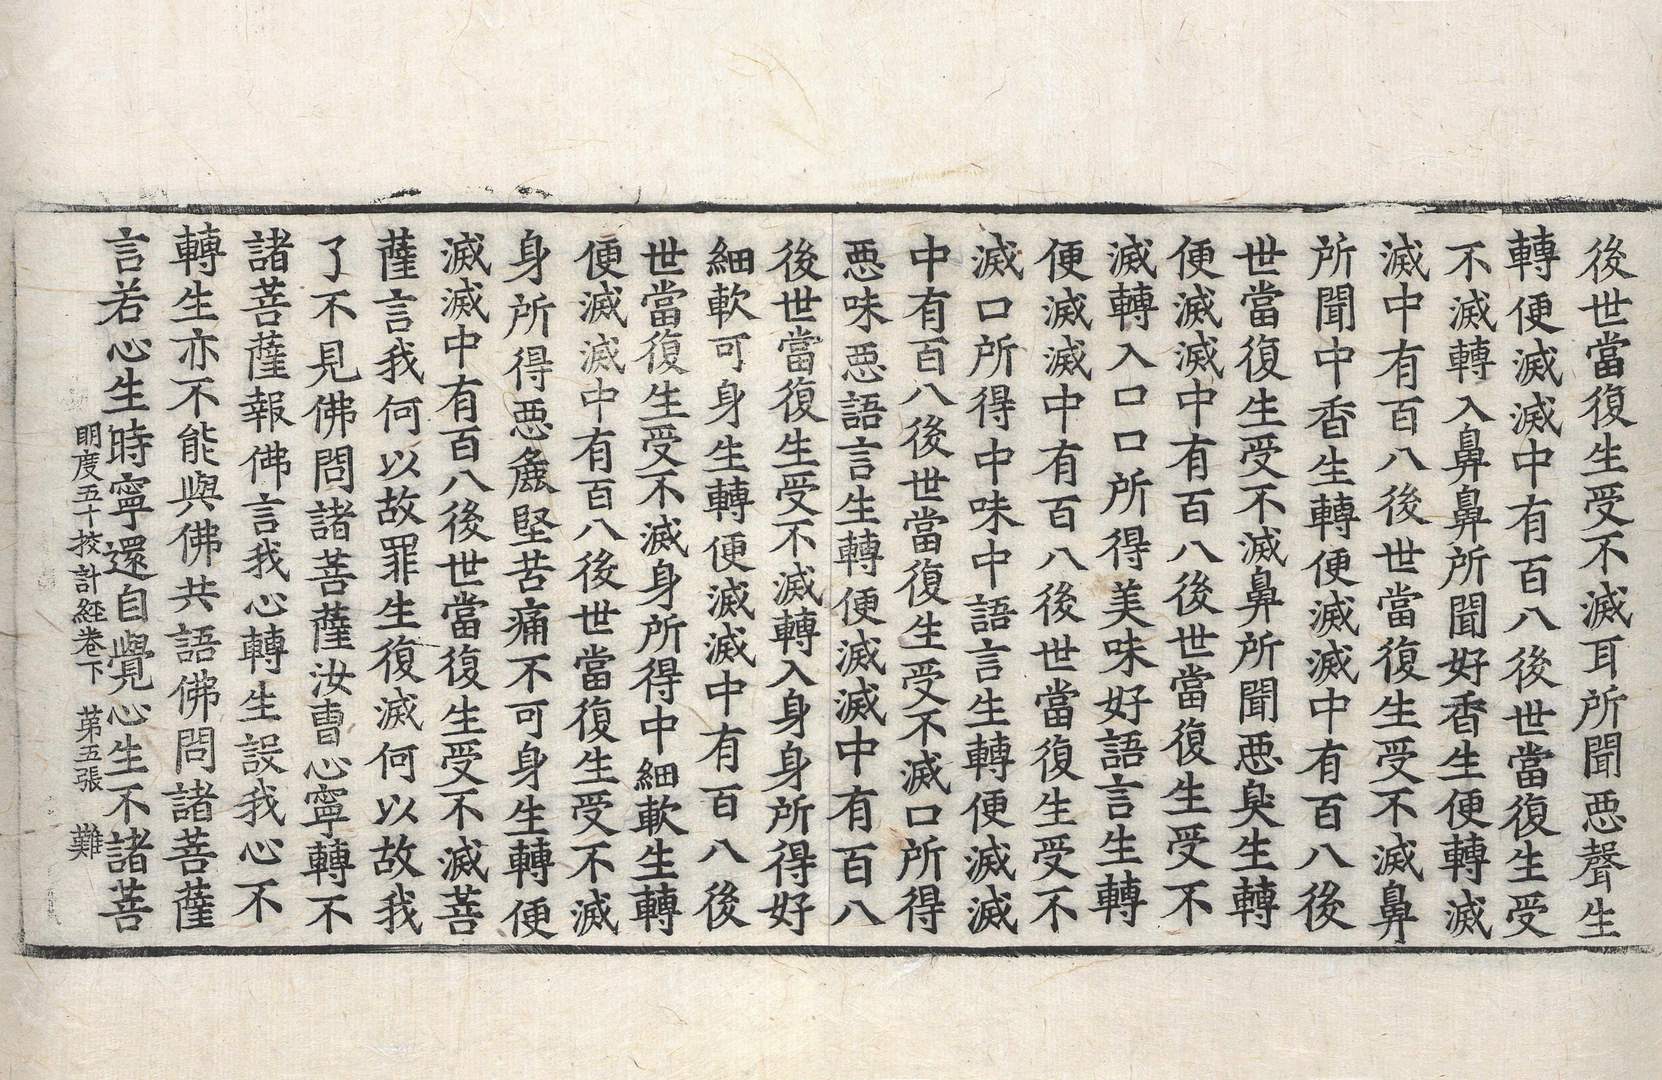 後世當復生受不滅耳所聞惡聲生
轉便滅滅中有百八後世當復生受
不滅轉入鼻鼻所聞好香生便轉滅
滅中有百八後世當復生受不滅鼻
所聞中香生轉便滅滅中有百八後
世當復生受不滅鼻所聞惡臭生轉
便滅滅中有百八後世當復生受不
滅轉入口口所得美味好語言生轉
便滅滅中有百八後世當復生受不
滅口所得中味中語言生轉便滅滅
中有百八後世當復生受不滅口所得
惡味惡語言生轉便滅滅中有百八
後世當復生受不滅轉入身身所得好
細軟可身生轉便滅滅中有百八後
世當復生受不滅身所得中細軟生轉
便滅滅中有百八後世當復生受不滅
身所得惡麁堅苦痛不可身生轉便
滅滅中有百八後世當復生受不滅菩
薩言我何以故罪生復滅何以故我
了不見佛問諸菩薩汝曹心寧轉不
諸菩薩報佛言我心轉生設我心不
轉生亦不能與佛共語佛問諸菩薩
言若心生時寧還自覺心生不諸菩
明度五十挍計經卷下 第五張 難